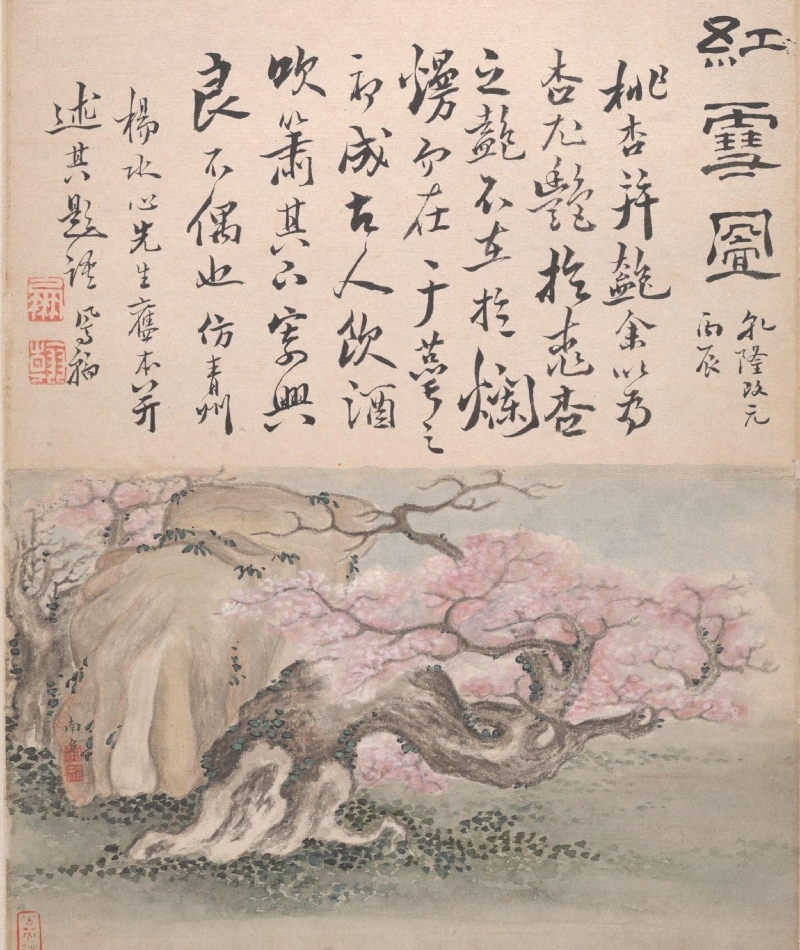 紅雪圖
乾隆改元
丙辰
桃杏并艷余以為
杏尤艷於桃杏
之艷不在於爛
熳而在于蕚之
初成古人飲酒
吹簫其亦寄興
良不偶也仿青州
楊水心先生舊本并
述其題語鳳翰
南阜